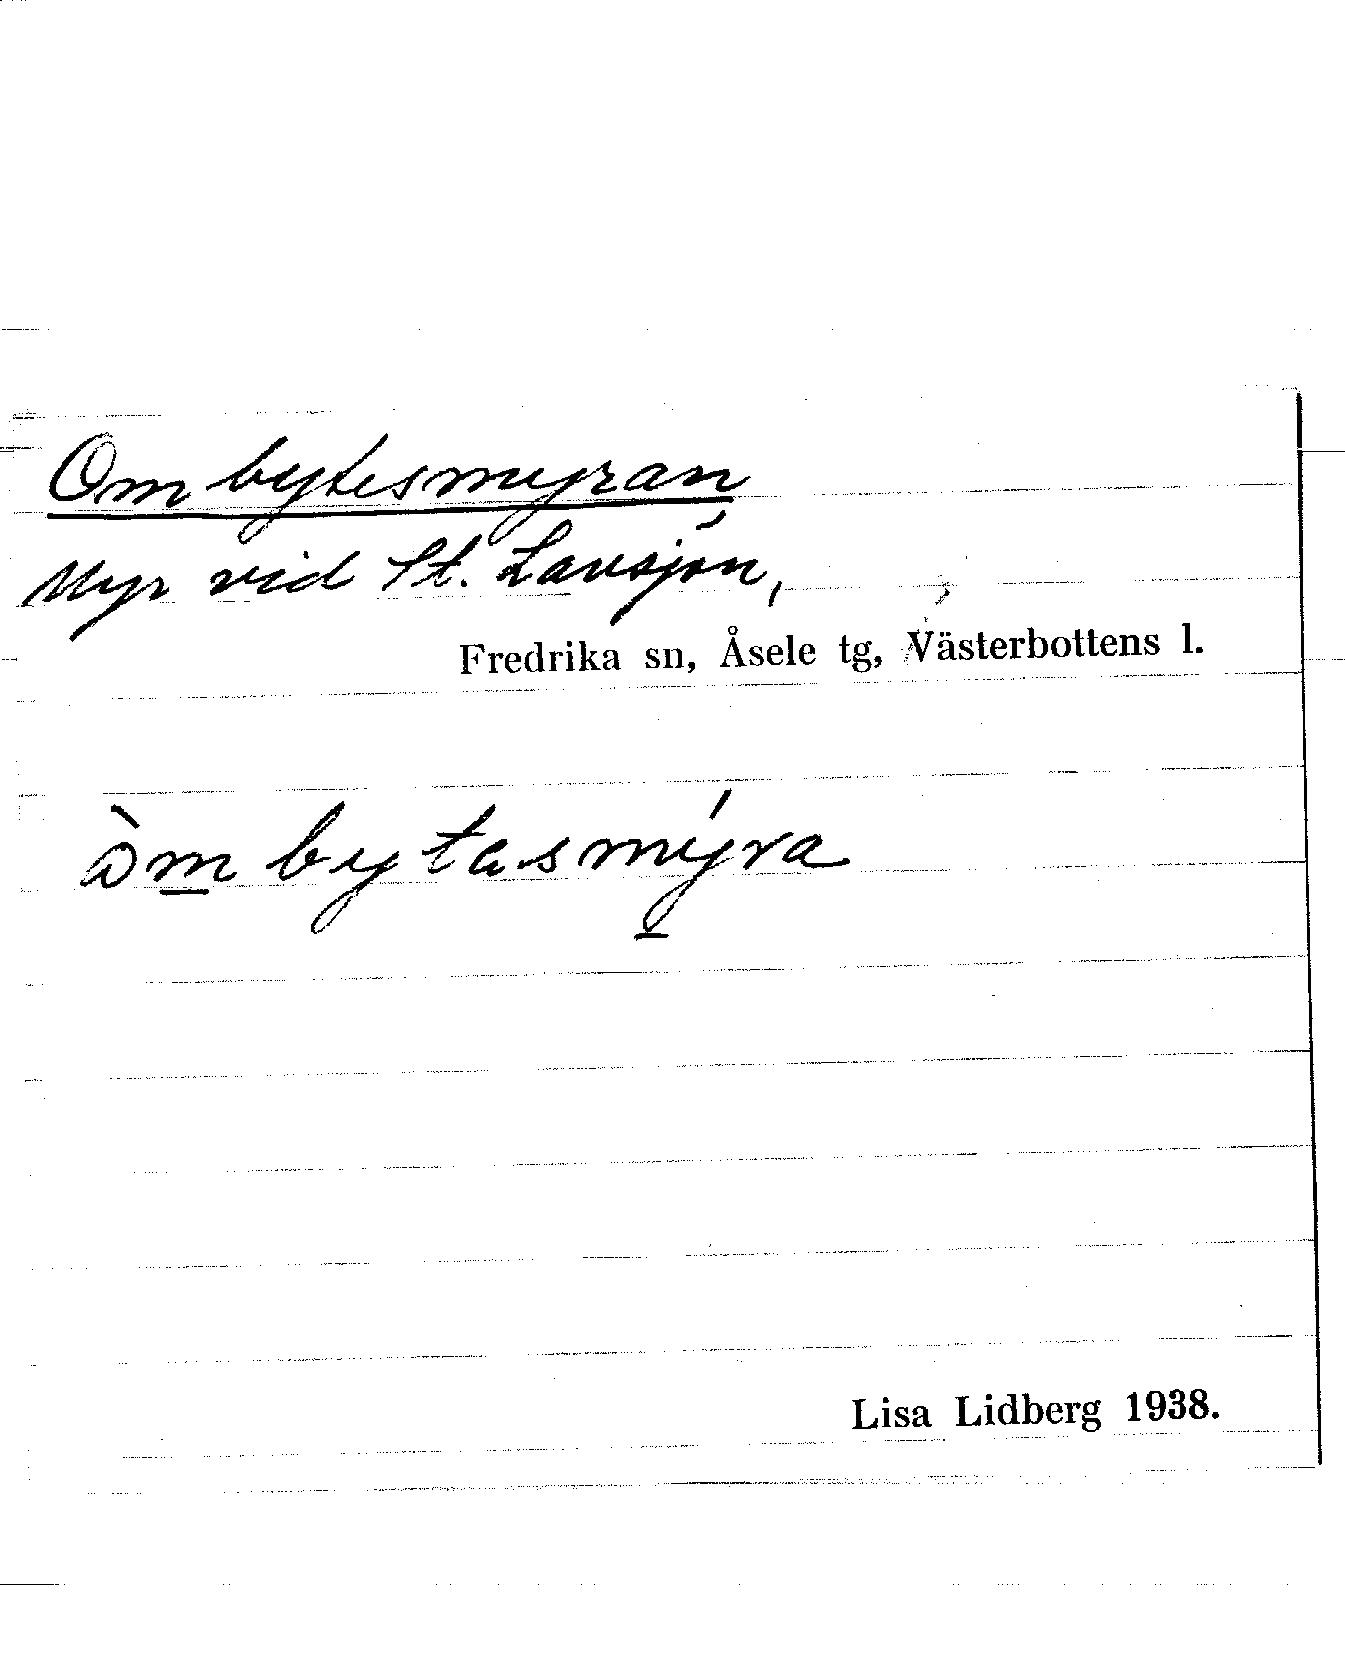 Ombytesmyran
Myr vid St. Lavsjön,
Fredrika sn, Åsele tg, Västerbottens l.
òm bytasmýra
Lisa Lidberg 1938.